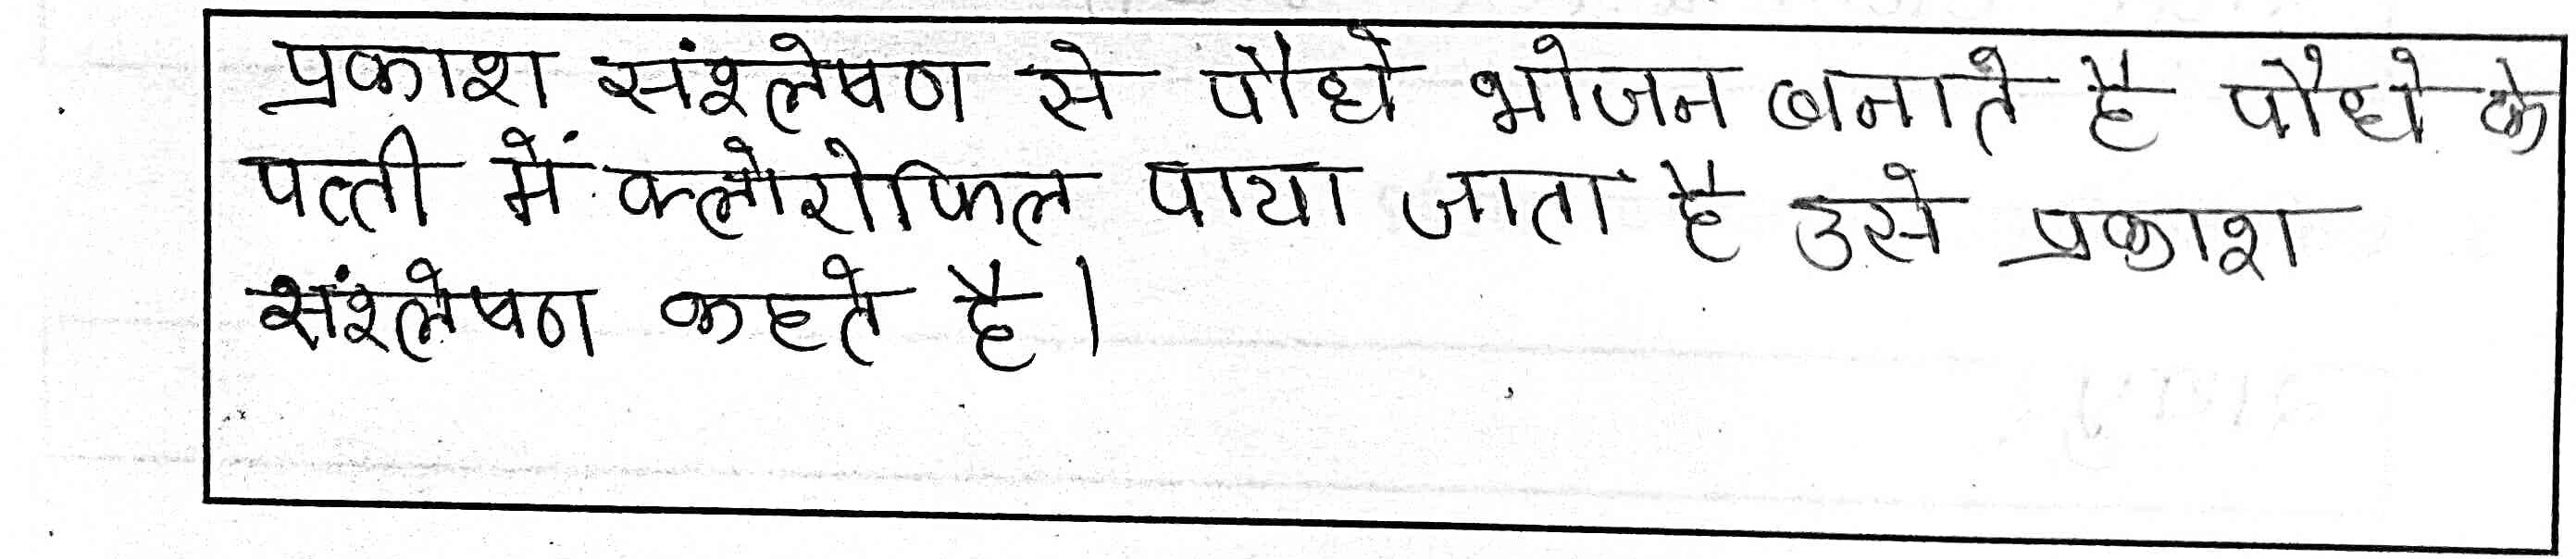 प्रकाश संश्लेषण से पौधे भोजन बनाते है पौधे के
पत्ती में क्लोरोफिल पाया जाता है उसे प्रकाश
संश्लेषण कहते है।